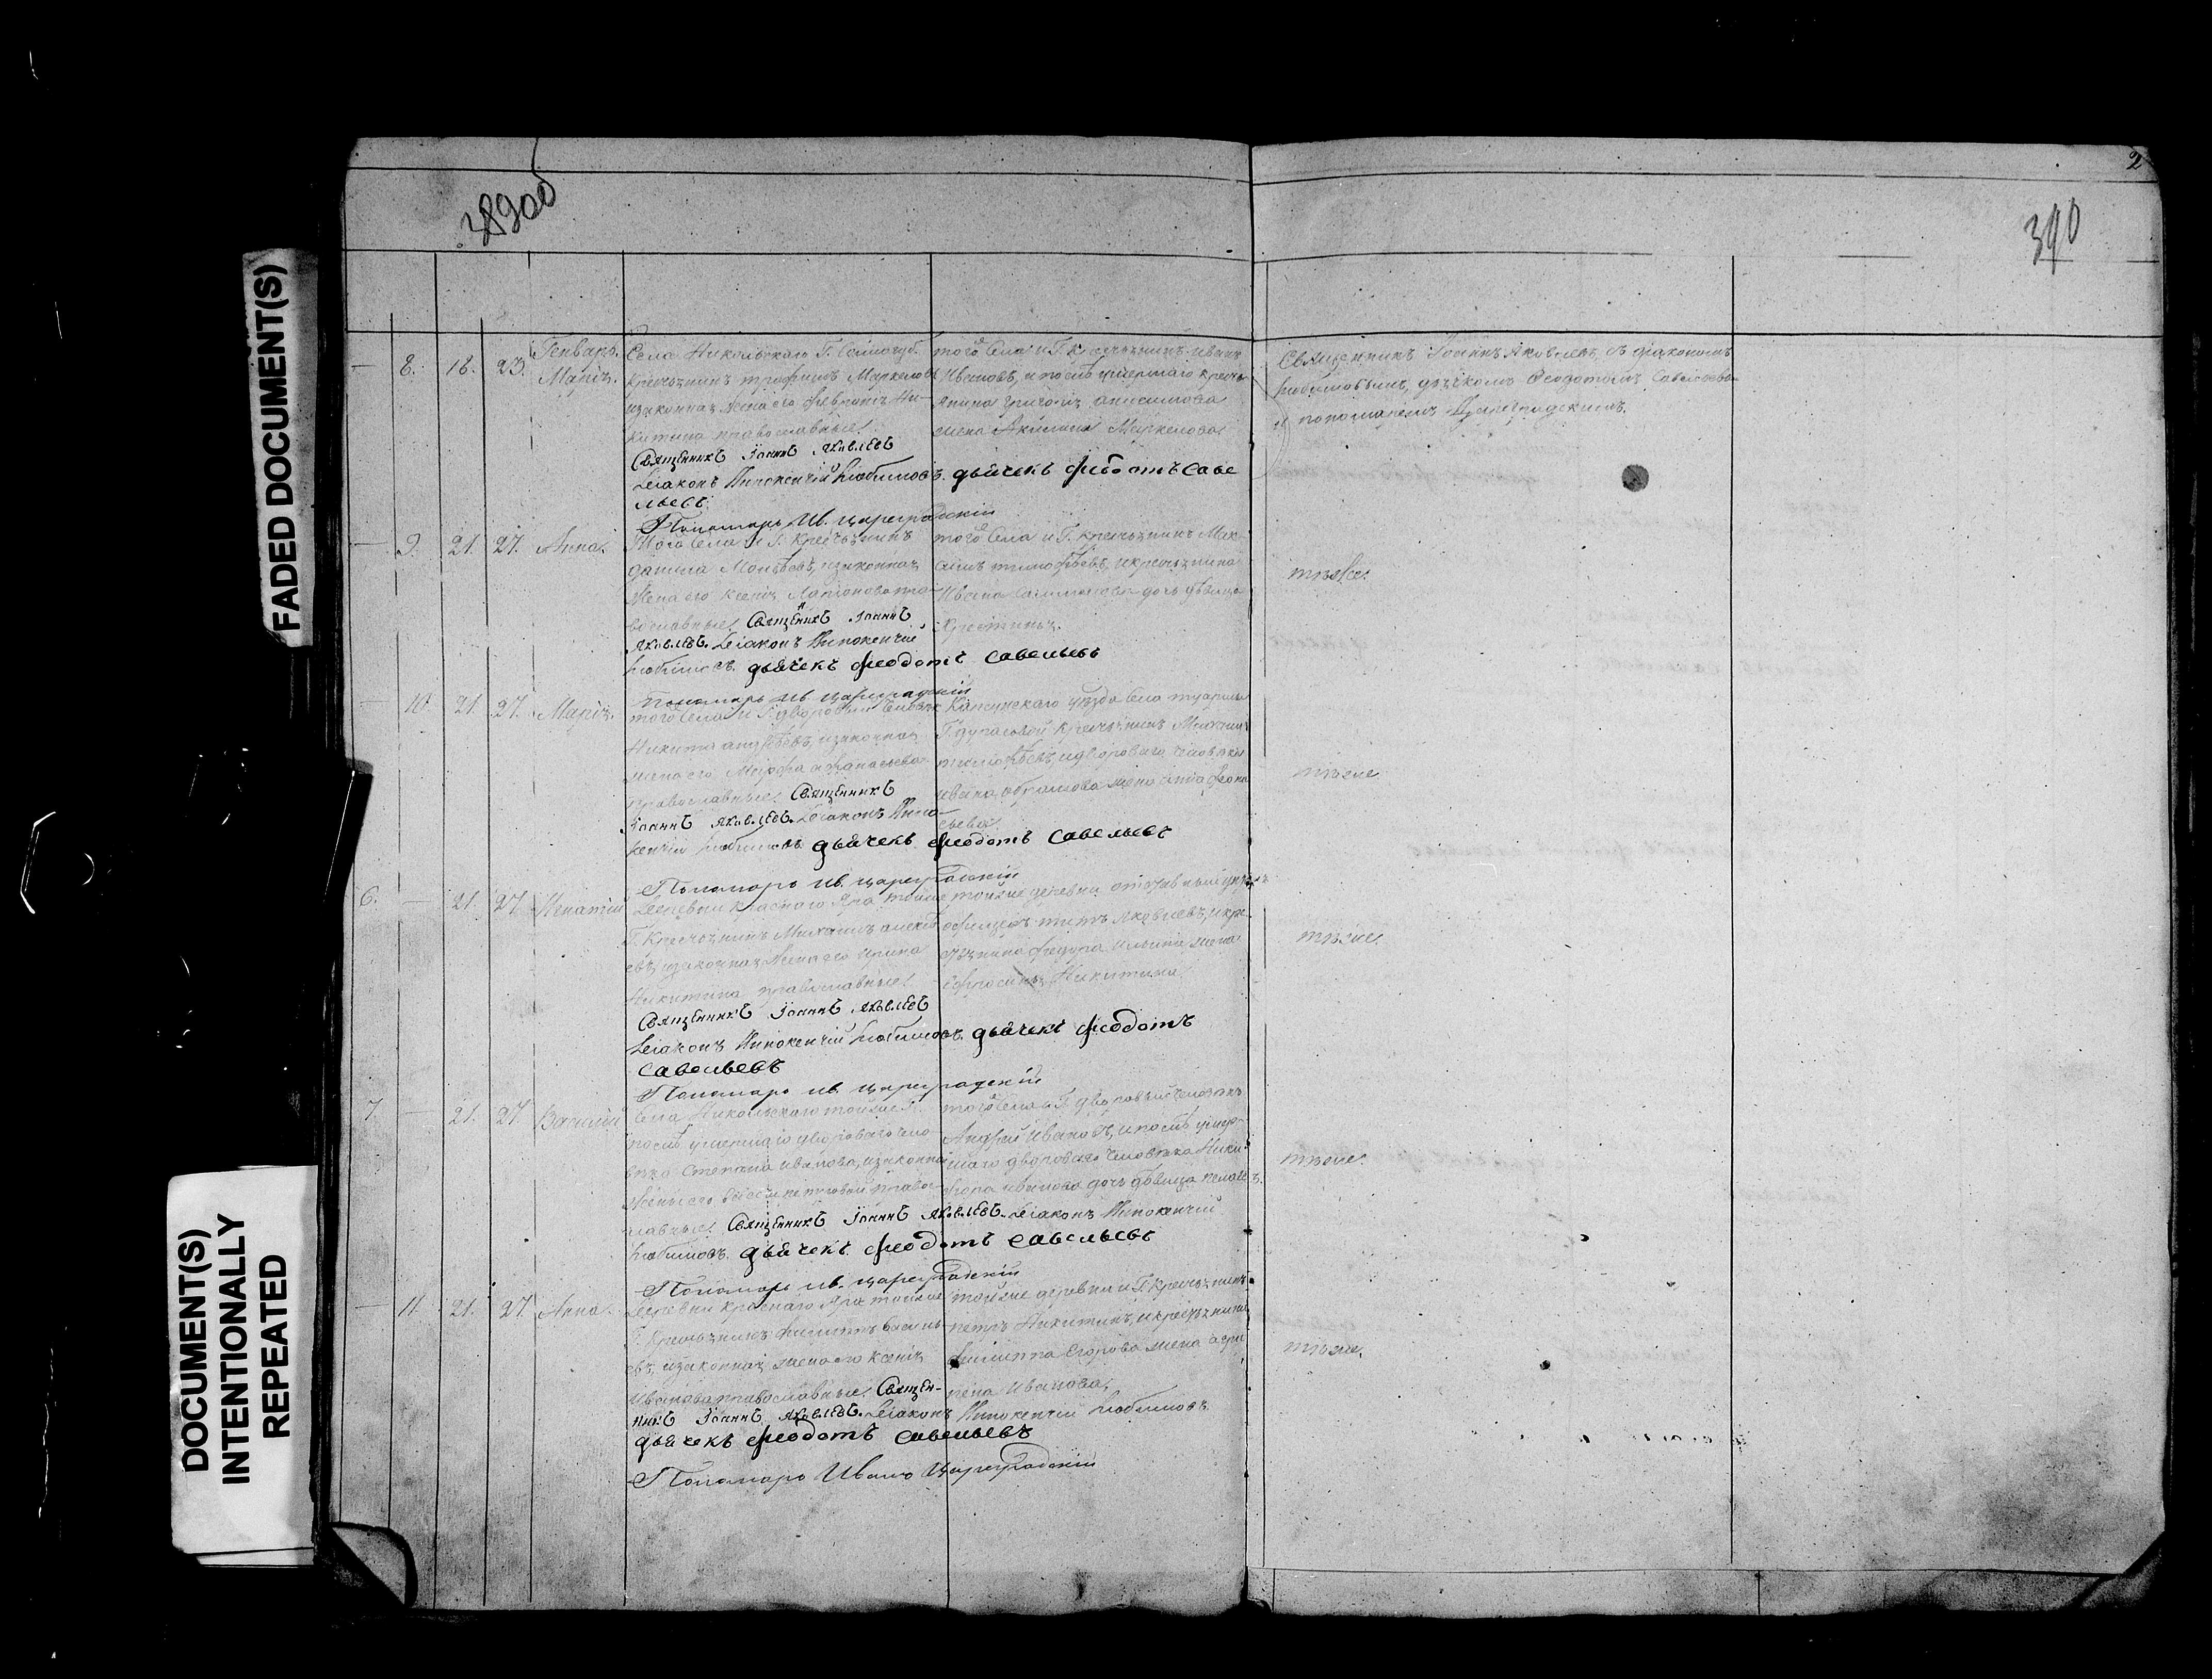 FADED DOCUMENT(S)
DOCUMENT(S)
INTENTIONALLY
REPEATED
389об
2
390
Генварь.
8. 18. 23. Марiя.
Села Никольскаго Г.
крестьянинъ трофимъ Маркеловъ
изаконная жена его Февронiя Ни-
китина православные.
Священникъ Iоаннъ Яковлевъ
Дiаконъ Инокентiй Любимовъ. дьячекъ Феодотъ Саве
льевъ.
Пономарь Ив. Цареградскiй
того Села и Г. крестьянинъ Иванъ
Ивановъ, и послѣ умершаго кресть-
янина Григорiя анисимова
жена Акилина Маркелова
Священникъ Iоаннъ Яковлевъ, съ дiакономъ
Любимовымъ, дьячкомъ Феодотомъ Савельевы
и пономаремъ Цареградскимъ.
9. 21. 27. Анна.
Того Села и Г. крестьянинъ
данила изаконная
жена его Ксенiя Ларiонова пра-
вославные. Священникъ Iоаннъ
Яковлевъ. Дiаконъ Инокентiй
Любимовъ. дьячекъ Феодотъ Савельевъ
Пономарь Ив. Цареградскiй
того Села и Г. крестьянинъ Мак-
симъ тимофѣевъ, икрестьянина
Ивана дочь дѣвица
Христинья.
тѣже.
10. 21. 27. Марiя.
того Села и Г. дворовый Человѣк
Никита андрѣевъ, изаконная
жена его Марфа афанасьева
православные. Священникъ
Iоаннъ Яковлевъ. Дiаконъ Инно-
кентiй Любимовъ. дьячекъ Феодотъ Савельевъ
Пономарь Ив. Цареградскiй
Карсунскаго уѣзда Села
Г. дурасовой крестьянинъ
тимофѣевъ, идвороваго человѣка
Ивана абрамова жена
сьева
тѣже
6. 21. 27. Игнатiй
Деревни Краснаго Яра тойже
Г. Крестьянинъ Михаилъ алексѣ
евъ, изаконная жена его Ирина
Никитина православные.
Священникъ Iоаннъ Яковлевъ
Дiаконъ Инокентiй Любимовъ. дьячекъ Феодотъ
Савельевъ
Пономарь Ив. Цареградскiй
тойже деревни отставный унтеръ
офицеръ титъ Яковлевъ, икре-
стьянина Федора Ильина жена
Ефросинья Никитина.
тѣже.
7. 21. 27. Василiй
Села Никольскаго тойже Г.
послѣ умершаго двороваго чело
вѣка Степана Иванова, изаконной
жены его православ
лавные. Священникъ Iоаннъ Яковлевъ. Дiаконъ Инокентiй
Любимовъ. дьячекъ Феодотъ Савельевъ
Пономарь Ив. Цареградскiй
того Села и Г. дворовый Человѣкъ
Андрей Ивановъ, ипослѣ умер-
шаго двороваго Человѣка Ники-
фора Иванова дочь дѣвица Пелаге
я.
тѣже.
11. 21. 27. Анна.
Деревни Краснаго Яра тойже
Г. Крестьянинъ Филиппъ василь
евъ, изаконная жена его Ксенiя
Иванова православные. Священ-
никъ Iоаннъ Яковлевъ. Дiаконъ Инокентiй Любимовъ
дьячекъ Феодотъ Савельевъ
Пономарь Иванъ Цареградскiй
тойже деревни и Г. Крестьянинъ
петръ Никитинъ, икрестьянина
Филиппа Егорова жена агри
пена Иванова.
тѣже.